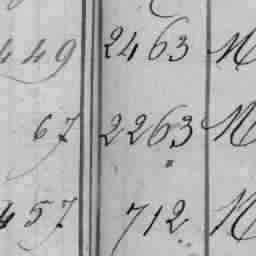 449 2463 M
67 2263 M
457 712 M